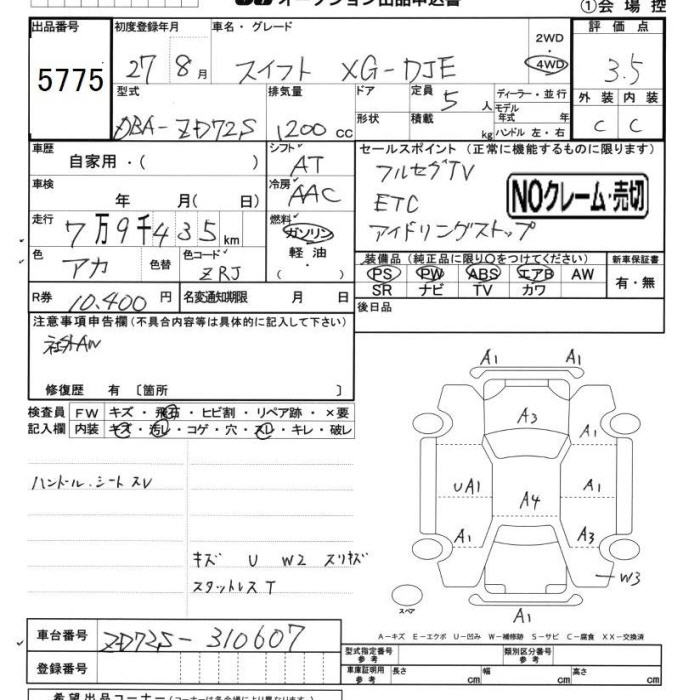 オークション出品申込書
①会場控
出品番号 初度登録年月 車名・グレード 評価点
5775 27年 8月 スイフト XG-DJE 2WD・4WD 3.5
型式 排気量 ドア 定員 5人 ディーラー・並行 外装 内装
DBA-ZD72S 1200cc 形状 積載 kg モデル年式 年 ハンドル 左・右 C C
車歴 自家用・( ) シフト AT
セールスポイント(正常に機能するものに限ります)
フルセグTV
ETC
アイドリングストップ
NOクレーム・売切
車検 年 月( 日) 冷房 AAC
走行 7万9千435km 燃料 ガソリン
軽油
( )
色 アカ 色替 色コード ZRJ
装備品(純正品に限り○をつけてください) 新車保証書
PS PW ABS エアB AW 有・無
SR ナビ TV カワ
R券 10,400円 名変通知期限 月 日
後日品
注意事項申告欄(不具合内容等は具体的に記入して下さい)
社外AW
修復歴 有 〔箇所 〕
検査員 FW キズ・飛石・ヒビ割・リペア跡・×要
記入欄 内装 キズ・汚レ・コゲ・穴・スレ・キレ・破レ
ハンドル.シートスレ
キズ U W2 スリキズ
スタットレスT
A1 A1
A3
A1
UA1 A4 A1
A1 A3
W3
A1
スペア
A-キズ E-エクボ U-凹み W-補修跡 S-サビ C-腐食 XX-交換済
車台番号 ZD72S-310607
登録番号
型式指定番号 参考 類別区分番号 参考
車庫証明用 参考 長さ cm 幅 cm 高さ cm
希望出品コーナー